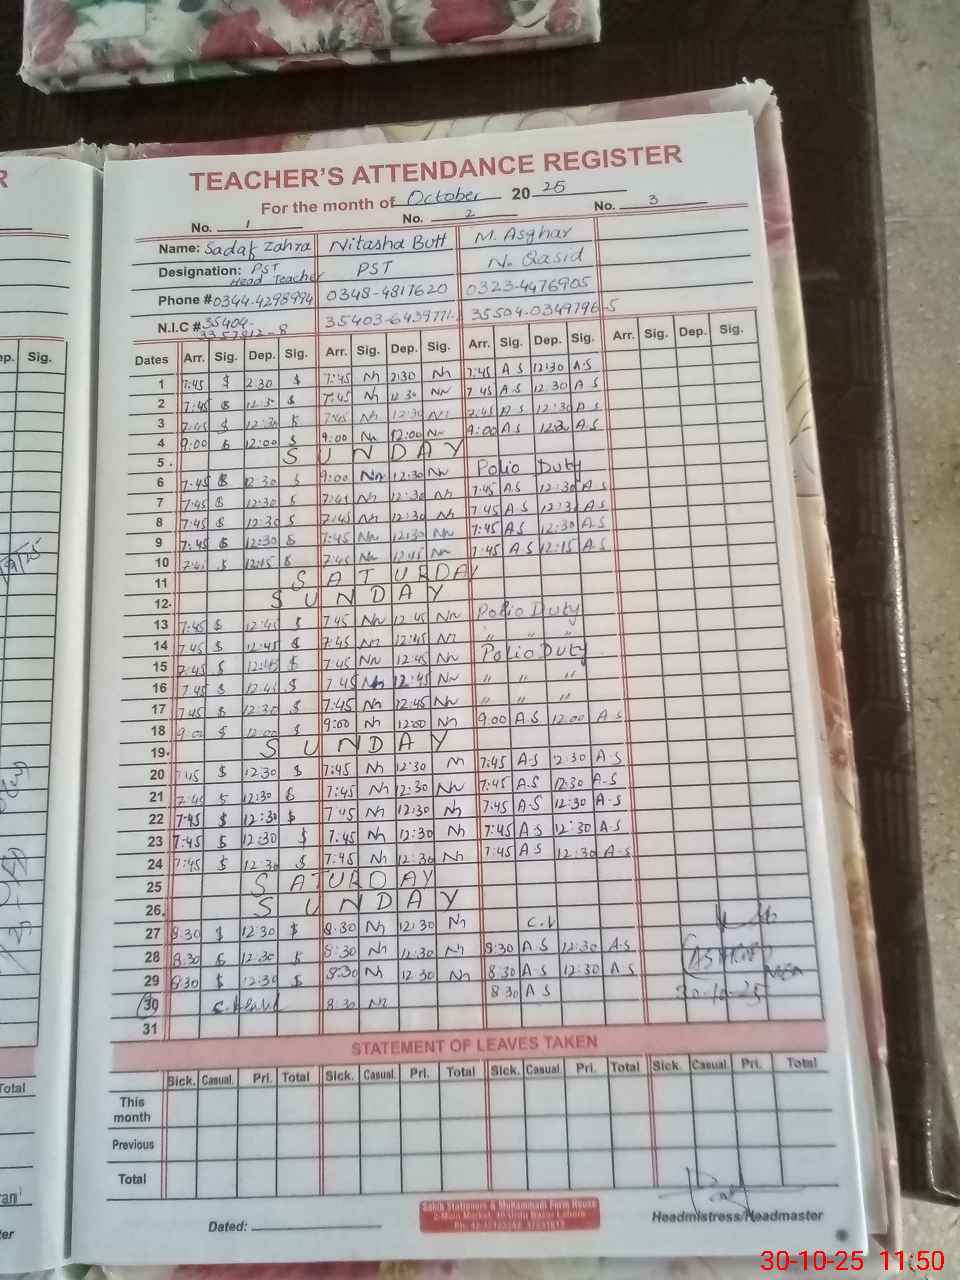 TEACHER'S ATTENDANCE REGISTER
For the month of October 20 25
No. 1 No. 2 No. 3
Name: Sadaf Zahra Nitasha Butt M. Asghar
Designation: PST Head Teacher PST N. Qasid
Phone # 0344-4298994 0348-4817620 0323-4476905
N.I.C # 35404- 35403-6439771- 35504-0349796-5
Dates Arr. Sig. Dep. Sig. Arr. Sig. Dep. Sig. Arr. Sig. Dep. Sig. Arr. Sig. Dep. Sig.
1 7:45 $ 2:30 $ 7:45 Nn 2:30 Nn 7:45 A S 12:30 A-S
2 7:45 $ $ 7:45 Nn 12:30 Nn 7 45 A S 12.30 A S
3 7:45 $ 12:30 $ 7:45 Nn 12:30 Nn 7:45 A S 12:30 A S
4 9:00 $ 12:00 $ 9:00 Nn 12:00 Nn 9:00 A S A-S
5. SUNDAY
6 7:45 $ 12 30 $ 9:00 Nn 12:30 Nn Polio Duty
7 7:45 $ 12:30 $ 7:45 Nn 12:30 Nn 7:45 A S 12:30 A S
8 7:45 $ 12:30 $ 7:45 Nn 12:30 Nn 7:45 A S A S
9 7:45 $ 12:30 $ 7:45 Nn 12:30 Nn 7:45 A S 12:30 A S
10 $ 12:15 $ 7:45 Nn 12:15 Nn 7:45 A S 12:15 A S
11 SATURDAY
12. SUNDAY
13 7:45 $ 12:45 $ 7:45 Nn 12:45 Nn Polio Duty
14 7:45 $ 12:45 $ 7:45 Nn 12:45 Nn " " "
15 7:45 $ 12:45 $ 7:45 Nn 12:45 Nn Polio Duty
16 7:45 $ 12:45 $ 7:45 Nn 12:45 Nn " " "
17 7:45 $ 12:30 $ 7:45 Nn 12:45 Nn " " "
18 9:00 $ 12:00 $ 9:00 Nn 12:00 Nn 9:00 A S 12:00 A S
19. SUNDAY
20 7:45 $ 12:30 $ 7:45 Nn 12:30 Nn 7:45 A-S 12:30 A-S
21 7:45 $ 12:30 $ 7:45 Nn 12:30 Nn 7:45 A-S 12:30 A-S
22 7:45 $ 12:30 $ 7:45 Nn 12:30 Nn 7:45 A-S 12:30 A-S
23 7:45 $ 12:30 $ 7:45 Nn 12:30 Nn 7:45 A S 12:30 A-S
24 7:45 $ 12:30 $ 7:45 Nn 12:30 Nn 7:45 A S 12:30 A-S
25 SATURDAY
26. SUNDAY
27 8:30 $ 12:30 $ 8:30 Nn 12:30 Nn
28 8:30 $ 12:30 $ 8:30 Nn 12:30 Nn 8:30 A S 12:30 A.S
29 8:30 $ 12:30 $ 8:30 Nn 12 30 Nn 8:30 A-S 12:30 A S
30 8:30 Nn 8:30 A S 30-10-25
31
STATEMENT OF LEAVES TAKEN
Sick. Casual. Pri. Total Sick. Casual. Pri. Total Sick. Casual. Pri. Total Sick. Casual. Pri. Total
This month
Previous
Total
Dated:
Headmistress/Headmaster
30-10-25 11:50